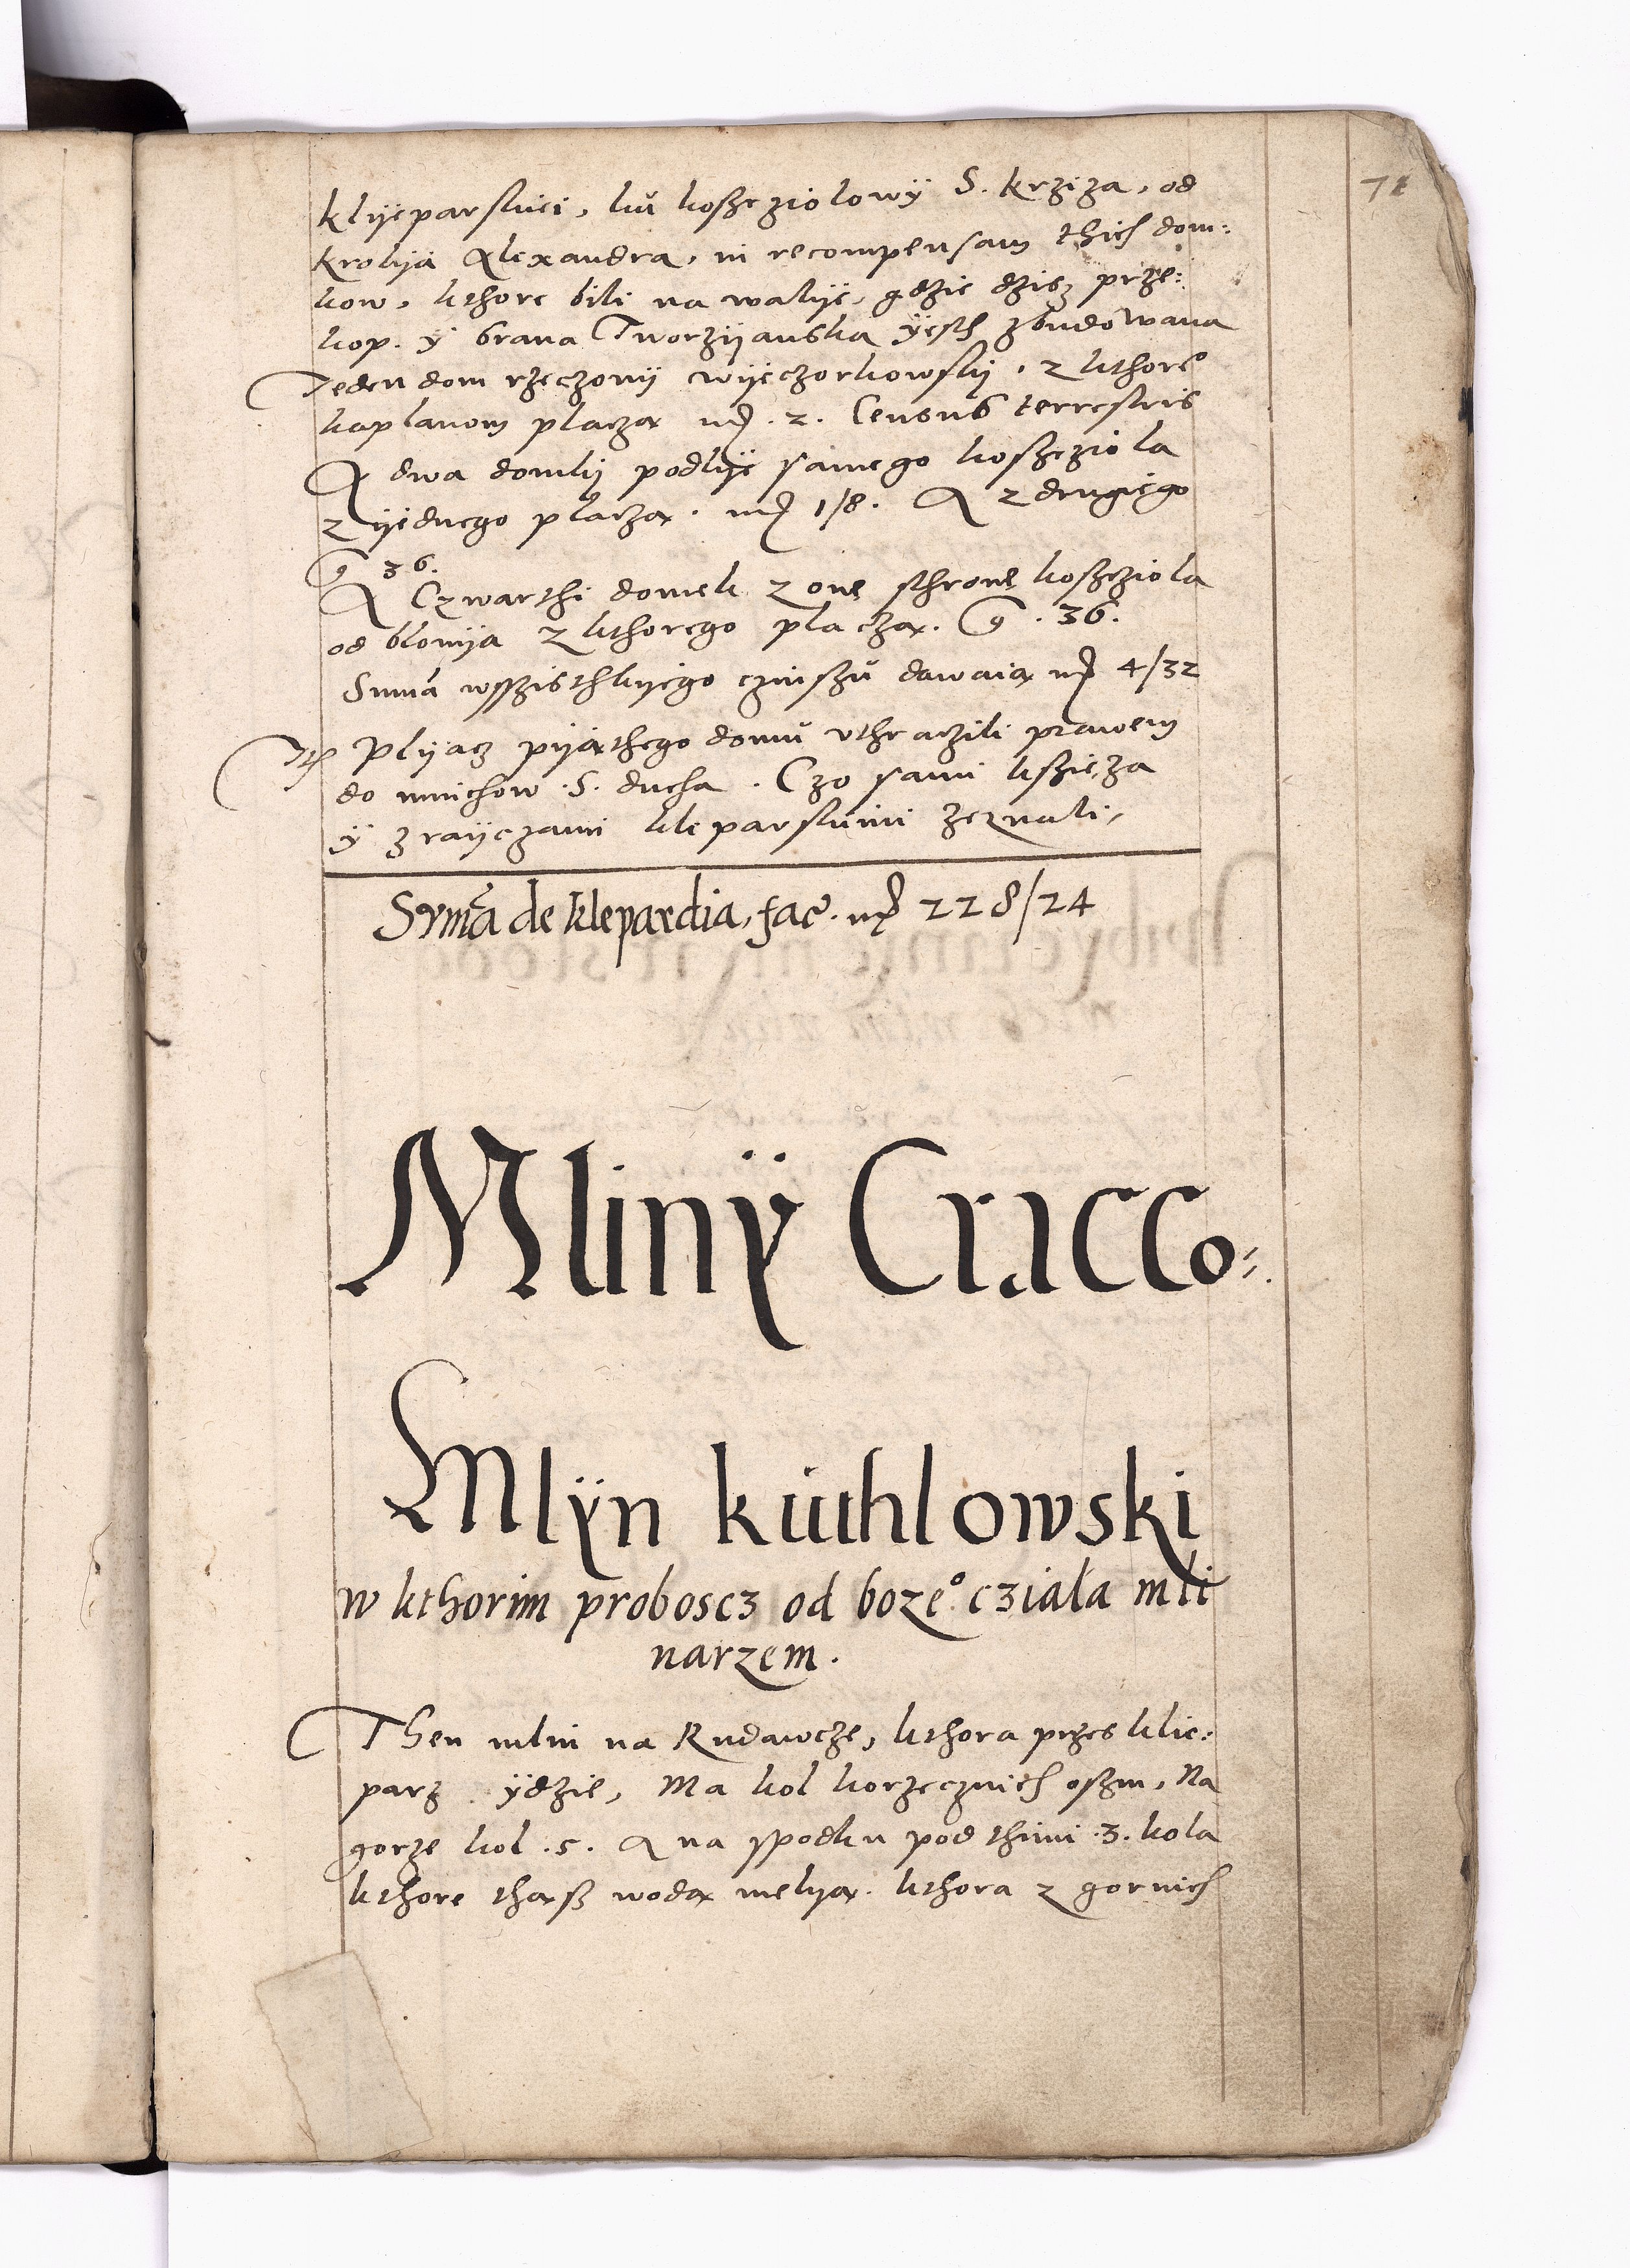 71
klÿeparskiei, kŭ kosczciolowÿ S. krziza, od
krolÿa Alexandra, in recompensam thich dom:
kow, kthore bili na walÿe, gdzie dzisz prze:
kop. ÿ brana Tworzÿanska ÿesth zbudowana
Jeden dom rzeczonÿ wÿeczorkowskÿ, z kthore°
kaplanom placza mr. 2. Census terrestris
A dwa domkÿ podlÿe samego kosczciola
z ÿednego placza. mr 1/8. A z drugiego
g 36.
A Czwarthi domek z one sthrone kosczciola
od blonÿa z kthorego placza. g. 36.
Suma wsszisthkÿego czinszŭ dawaia mr 4/32
Ith Plÿacz pÿathego domŭ vthraczili prawem
do mnichow .S. ducha. Czo sami kszieza
ÿ z raÿczami kleparskimi zeznali,
Svma de klepardia, fac. mr 228/24
Mlinÿ Cracco:
Mlÿn kuthlowski
w kthorim proboscz od boze° cziala mli
narzem.
Then mlin na Rudawcze, kthora przes klie:
parz ÿdzie, Ma kol korzecznich oszm, Na
gorze kol .5. A na spodku pod thimi .3. kola
kthore thasz woda melÿa. kthora z gornich